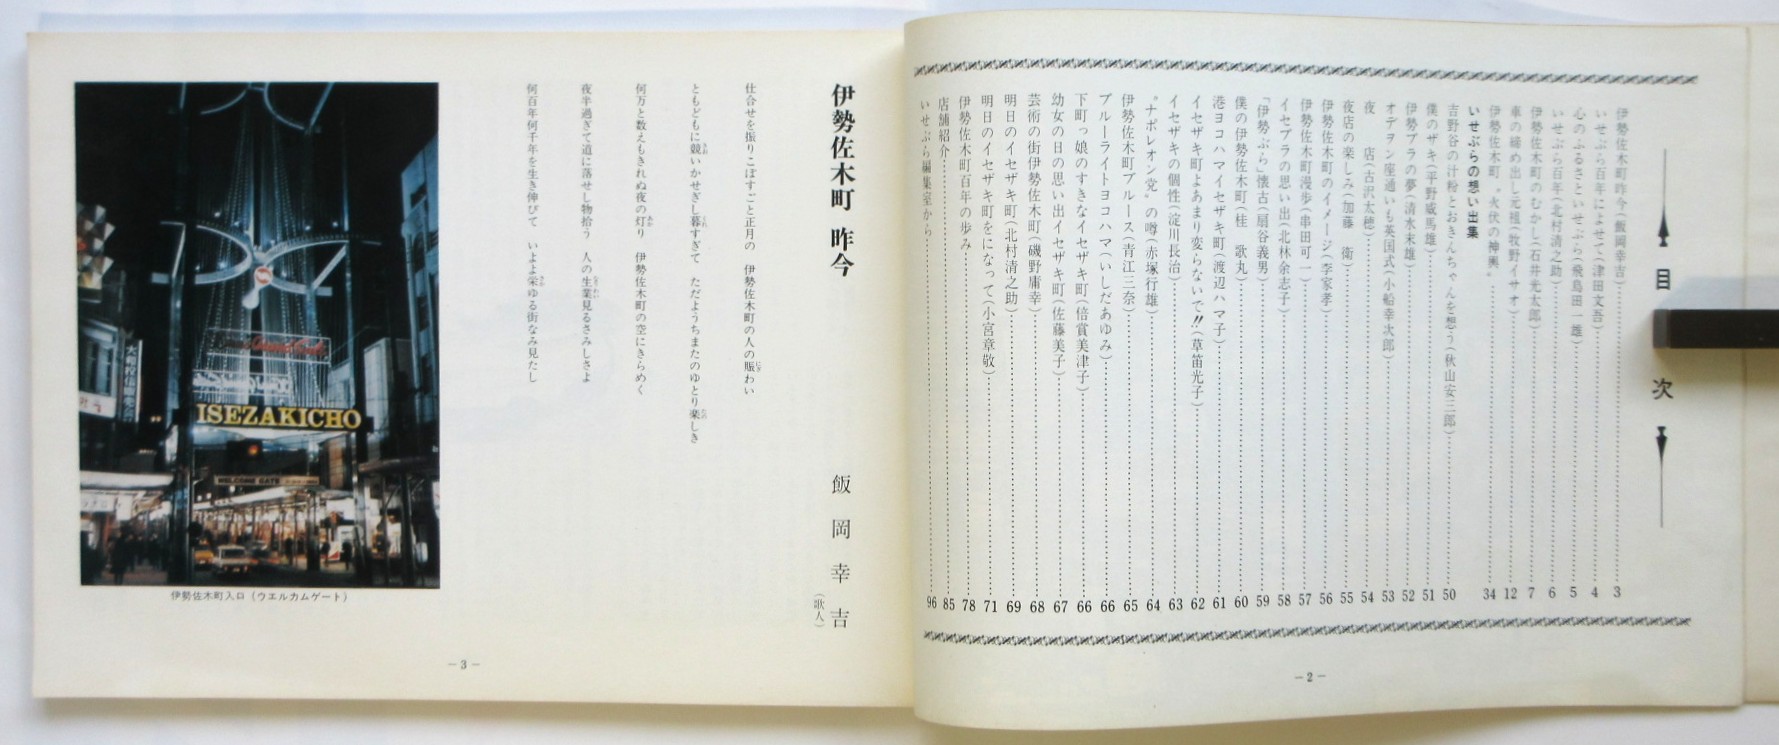 目次
伊勢佐木町昨今(飯岡幸吉)……3
いせぶら百年によせて(津田文吾)……4
心のふるさといせぶら(飛鳥田一雄)……5
いせぶら百年(北村清之助)……6
伊勢佐木町のむかし(石井光太郎)……7
車の締め出し元祖(牧野イサオ)……12
伊勢佐木町〝火伏の神輿〟……34
いせぶらの想い出集
吉野谷の汁粉とおきんちゃんを想う(秋山安三郎)……50
僕のザキ(平野威馬雄)……51
伊勢ブラの夢(清水末雄)……52
オデヲン座通いも英国式(小船幸次郎)……53
夜 店(古沢太穂)……54
夜店の楽しみ(加藤 衛)……55
伊勢佐木町のイメージ(李家孝)……56
伊勢佐木町漫歩(串田可一)……57
イセブラの思い出(北林余志子)……58
「伊勢ぶら」懐古(扇谷義男)……59
僕の伊勢佐木町(桂 歌丸)……60
港ヨコハマイセザキ町(渡辺ハマ子)……61
イセザキ町よあまり変らないで!!(草笛光子)……62
イセザキの個性(淀川長治)……63
〝ナポレオン党〟の噂(赤塚行雄)……64
伊勢佐木町ブルース(青江三奈)……65
ブルーライトヨコハマ(いしだあゆみ)……66
下町っ娘のすきなイセザキ町(倍賞美津子)……66
幼女の日の思い出イセザキ町(佐藤美子)……67
芸術の街伊勢佐木町(磯野庸幸)……68
明日のイセザキ町(北村清之助)……69
明日のイセザキ町をになって(小宮章敬)……71
伊勢佐木町百年の歩み……78
店舗紹介……85
いせぶら編集室から……96
－2－
伊勢佐木町 昨今
飯岡幸吉
(歌人)
仕合せを振りこぼすごと正月の 伊勢佐木町の人の賑わい
ともどもに競いかせぎし暮すぎて ただようちまたのゆとり楽しき
何万と数えもきれぬ夜の灯り 伊勢佐木町の空にきらめく
夜半過ぎて道に落せし物拾う 人の生業見るさみしさよ
何百年何千年を生き伸びて いよよ栄ゆる街なみ見たし
ISEZAKICHO
WELCOME GATE
伊勢佐木町入口(ウエルカムゲート)
－3－